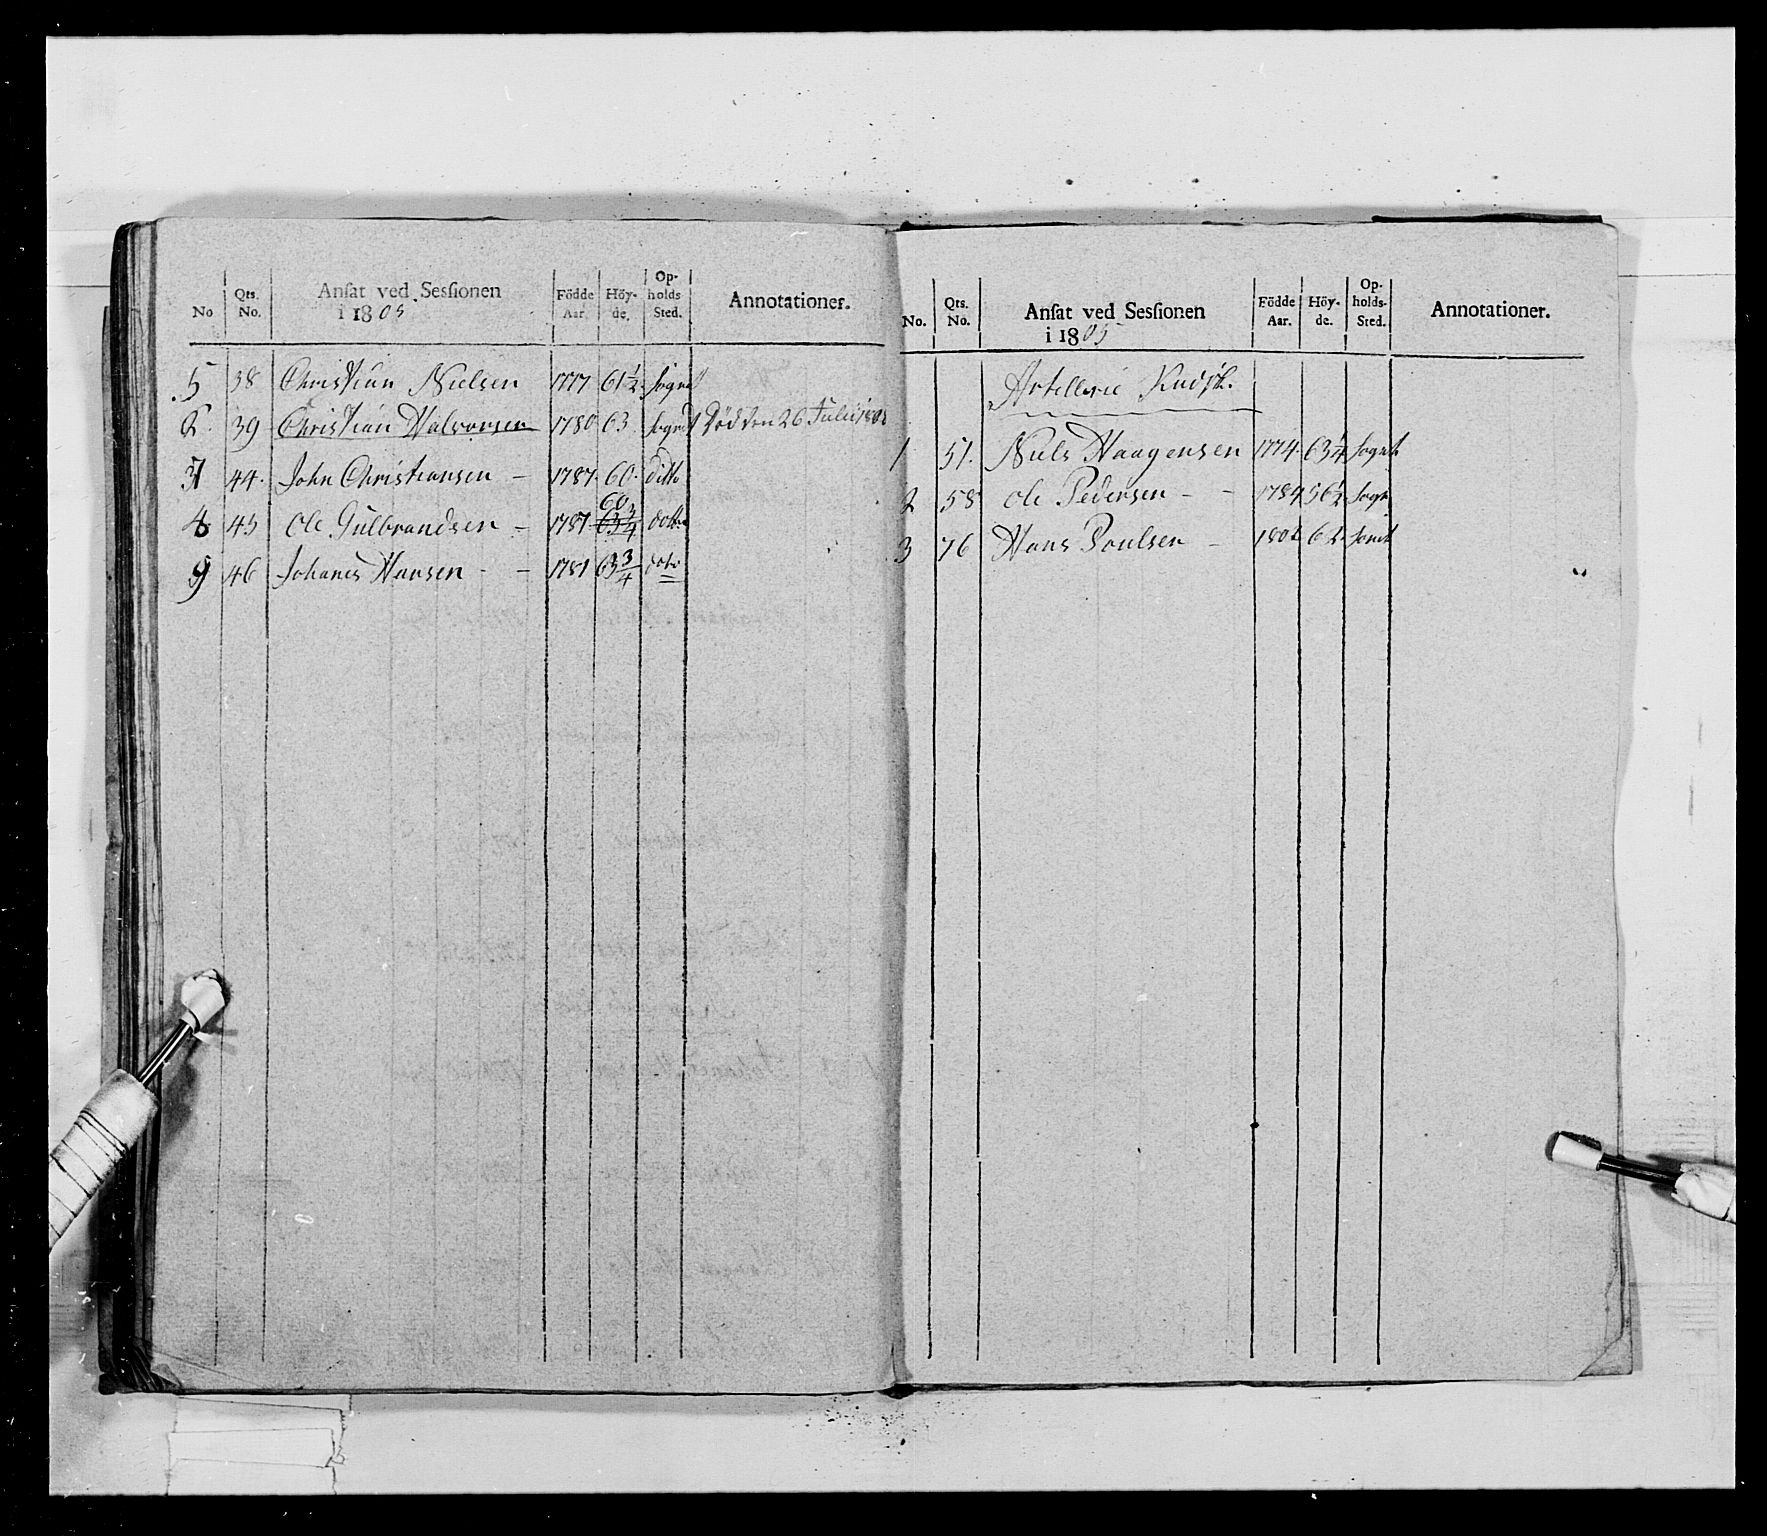 No Qts. No. Ansat ved Sessionen i 1805. Födde Aar. Höy-de. Op-holds Sted. Annotationer.
5 38 Christian Nielsen 1777 61½ Sognet
2. 39 Christian Halvorsen 1780 63 Sognet Död den 26 Julii
44. John Christiansen – 1787. 60. ditto
60
4 45 Ole Gulbrandsen – 1787 63¾ ditto
9 46 Johanes Hansen - – 1781 63¾ dito
No. Qts. No. Ansat ved Sessionen i 1805 Födde Aar. Höy-de. Op-holds-Sted. Annotationer.
Artillerie Kudsk.
1 51. Niels Haagensen 1774. 63¼ Sognet
2 58 Ole Pedersen - - 1784 56½ Sogn
3 76 Hans Poulsen – 62